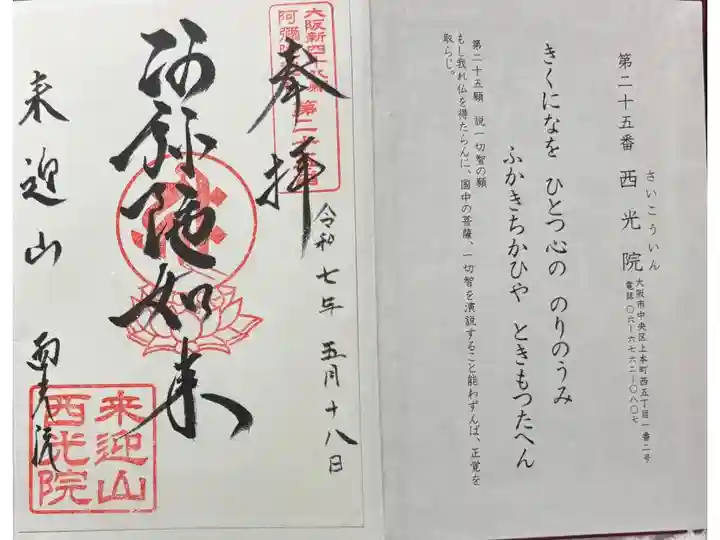 第二十五番 西光院
さいこういん
大阪市中央区上本町西五丁目一番二号
電話〇六ー六七六二ー〇八〇七
きくになを ひとつ心の のりのうみ
ふかきちかひや ときもつたへん
第二十五願 説一切智の願
もし我れ仏を得たらんに、国中の菩薩、一切智を演説すること能わずんば、正覚を
取らじ。
大阪新四十八願
阿彌陀
第二十五番
奉拝
令和七年 五月十八日
阿弥陀如来
来迎山 西光院
来迎山
西光院